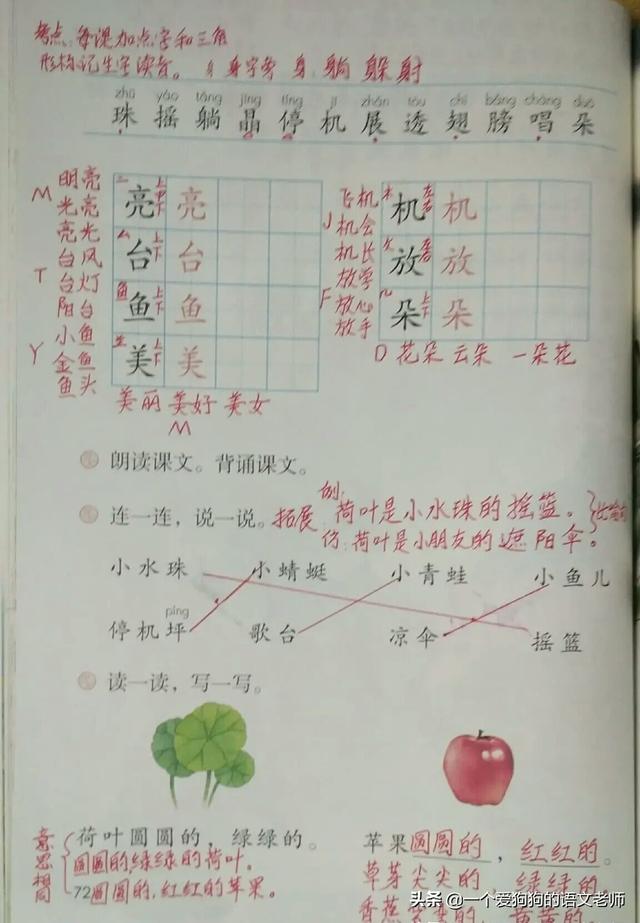 考点:每课加点字和三角
形标记生字读音。 身 身字旁 身 躺 躲 射
zhū yáo tǎng jīng tíng jī zhǎn tòu chì bǎng chàng duǒ
珠 摇 躺 晶 停 机 展 透 翅 膀 唱 朵
明亮
M 光亮
亮光
亮 上中下 亮
台风
T 台灯
阳台
厶 台 上下 台
小鱼
Y 金鱼
鱼头
鱼 上下 鱼
美 上下 美
美丽 美好 美女
M
飞机
J 机会
机长
木 机 左右 机
放学
F 放心
放手
攵 放 左右 放
几 朵 上下 朵
D 花朵 云朵 一朵花
朗读课文。背诵课文。
连一连,说一说。
拓展 例:荷叶是小水珠的摇篮。
仿:荷叶是小朋友的遮阳伞。
小水珠 小蜻蜓 小青蛙 小鱼儿
píng
停机坪 歌台 凉伞 摇篮
读一读,写一写。
荷叶圆圆的,绿绿的。
意思相同
圆圆的,绿绿的荷叶。
72 圆圆的,红红的苹果。
苹果圆圆的,红红的。
草芽尖尖的 绿绿的
香蕉
头条 @一个爱狗狗的语文老师